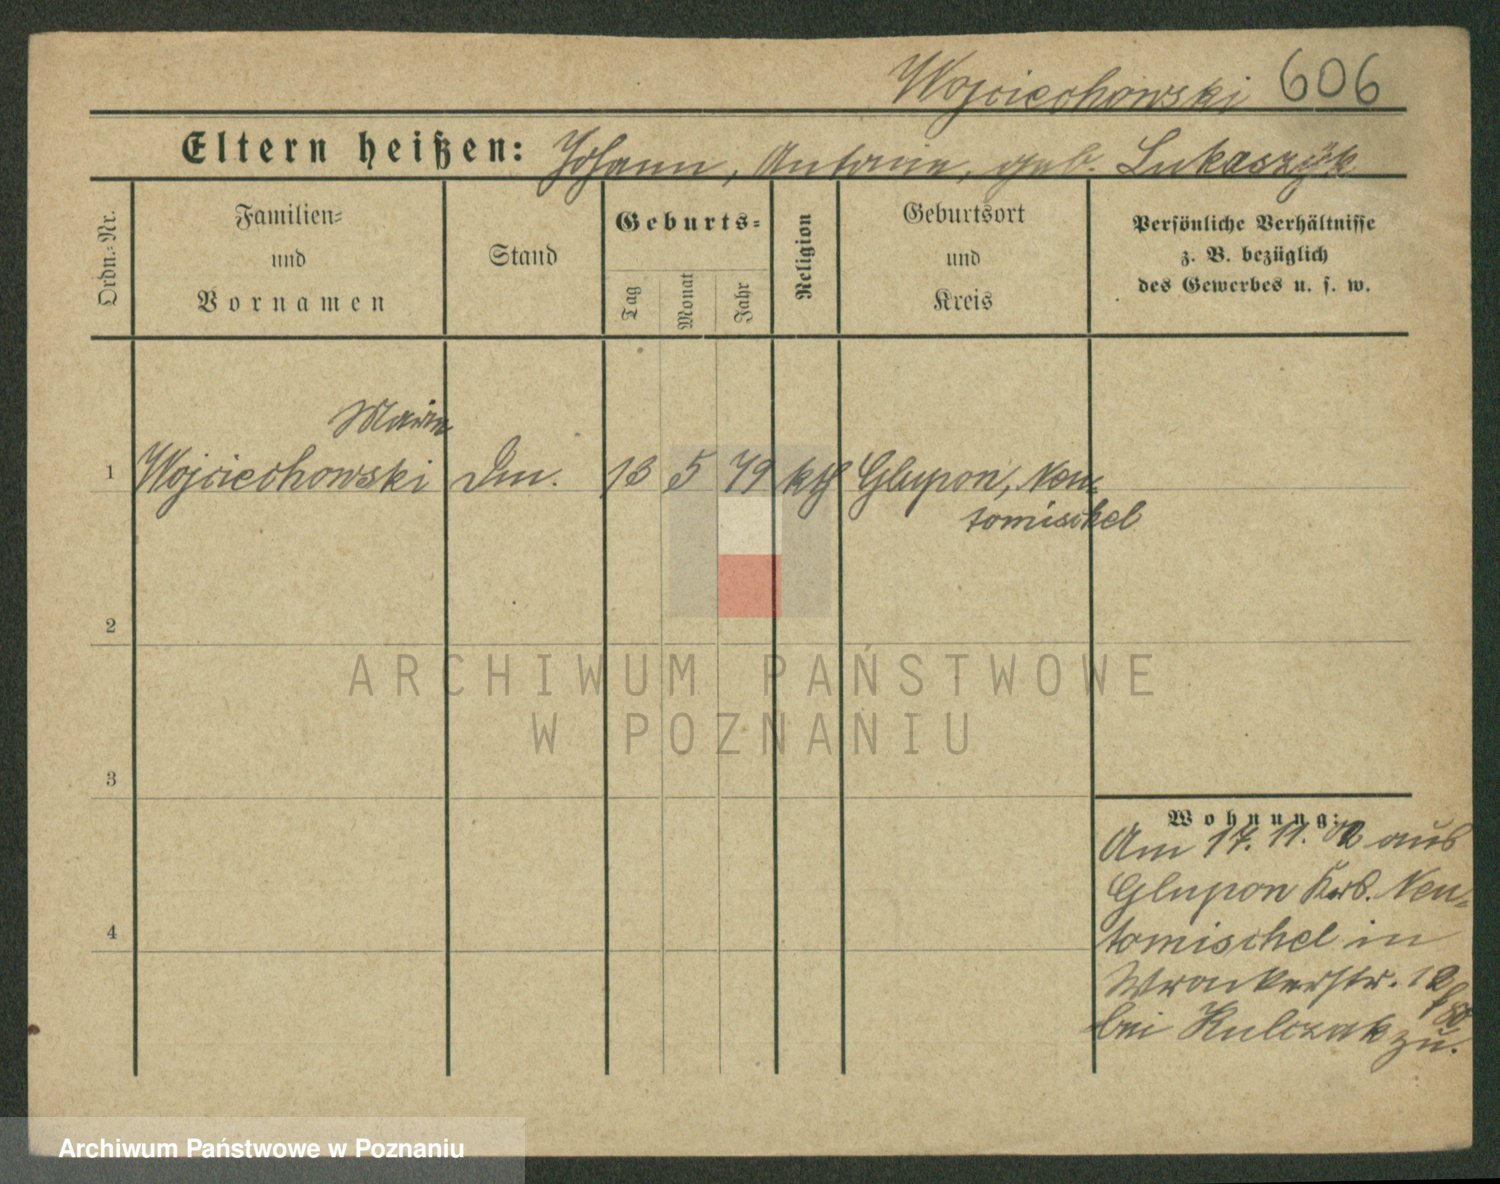 Wojciechowski 606
Eltern heißen: Johann, Antonie, geb. Lukaszyk
Ordn.-Nr.
Familien-
und
Vornamen
Stand
Geburts-
Tag
Monat
Jahr
Religion
Geburtsort
und
Kreis
Persönliche Verhältnisse
z. B. bezüglich
des Gewerbes u. s. w.
Marie
1 Wojciechowski Dm. 13 5 79 kth Glupon, Neu-
tomischel
2
3
4
Wohnung:
Am 17. 11. 02 aus
Glupon Neu-
tomischel in
Wronkerstr. 12
bei Kulczak zu.
ARCHIWUM PAŃSTWOWE
W POZNANIU
Archiwum Państwowe w Poznaniu